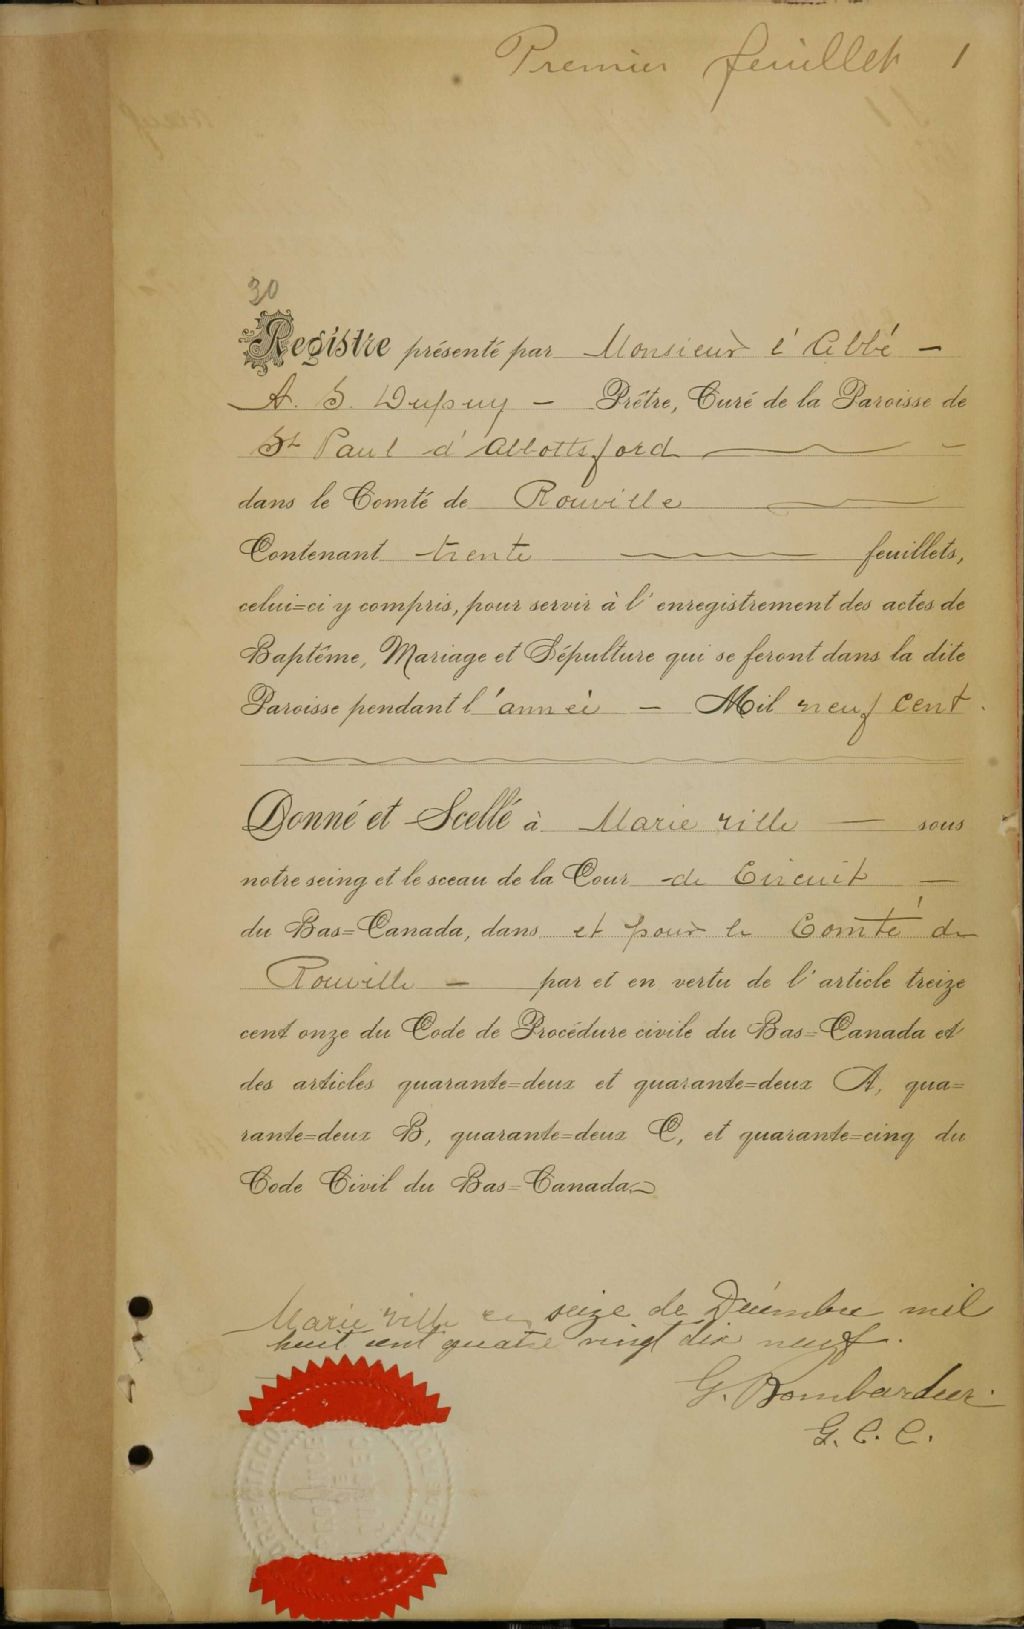 Premier feuillet 1
30
Registre présenté par Monsieur l'Abbé —
A. S. Dupuy — Prêtre, Curé de la Paroisse de
St Paul d'Abbottsford
dans le Comté de Rouville
Contenant trente feuillets,
celui=ci y compris, pour servir à l'enregistrement des actes de
Baptême, Mariage et Sépulture qui se feront dans la dite
Paroisse pendant l'anneé — Mil neuf cent.
Donné et Scellé à Marieville — sous
notre seing et le sceau de la Cour de Circuit —
du Bas=Canada, dans et pour le Comté de
Rouville — par et en vertu de l'article treize
cent onze du Code de Procédure civile du Bas=Canada et
des articles quarante=deux et quarante=deux A, qua=
rante=deux B, quarante=deux C, et quarante=cinq du
Code Civil du Bas=Canada.
Marieville ce seize de Décembre mil
huit cent quatre vingt dix neuf.
G. Bombardier
G. C. C.